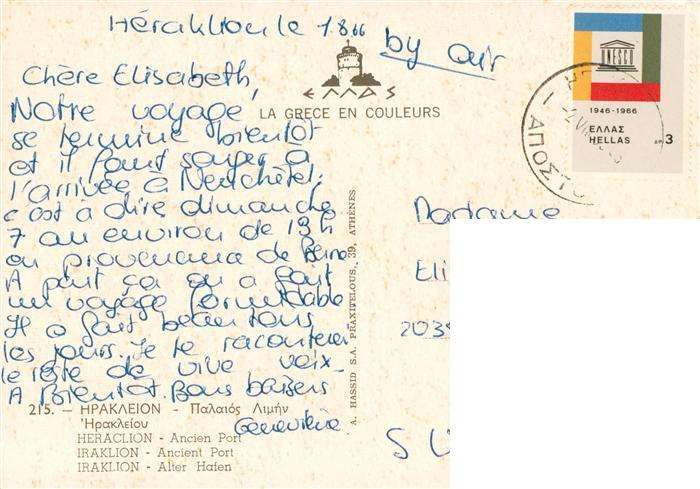 Héraklion le 1.8.66
by air
Chère Elisabeth,
Notre voyage
se termine bientôt
et il faut songer à
l'arrivée à Neuchâtel,
c'est à dire dimanche
7 au environ de 19h
en provenance de Berne
A part ça on a fait
un voyage formidable
Il a fait beau tous
les jours. Je te raconterai
le reste de vive voix.
A Bientôt. Bons baisers
Geneviève
ΕΛΛΑΣ
LA GRECE EN COULEURS
UNESCO
1946-1966
ΕΛΛΑΣ
HELLAS
ΔΡ. 3
Madame
Eli
203
S
A. HASSID S.A. PRAXITELOUS, 39, ATHÈNES
215. — ΗΡΑΚΛΕΙΟΝ - Παλαιός Λιμήν
Ἡρακλείου
HERACLION - Ancien Port
IRAKLION - Ancient Port
IRAKLION - Alter Hafen